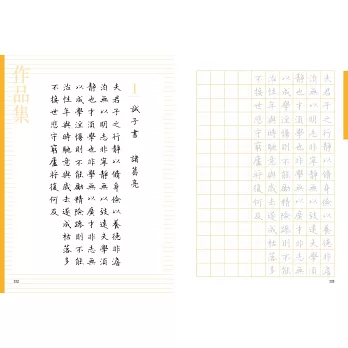 作品集
1 誡子書 諸葛亮
夫君子之行靜以修身儉以養德非澹
泊無以明志非寧靜無以致遠夫學須
靜也才須學也非學無以廣才非志無
以成學淫慢則不能勵精險躁則不能
治性年與時馳意與歲去遂成枯落多
不接世悲守窮廬將復何及
夫君子之行靜以修身儉以養德非澹
泊無以明志非寧靜無以致遠夫學須
靜也才須學也非學無以廣才非志無
以成學淫慢則不能勵精險躁則不能
治性年與時馳意與歲去遂成枯落多
不接世悲守窮廬將復何及